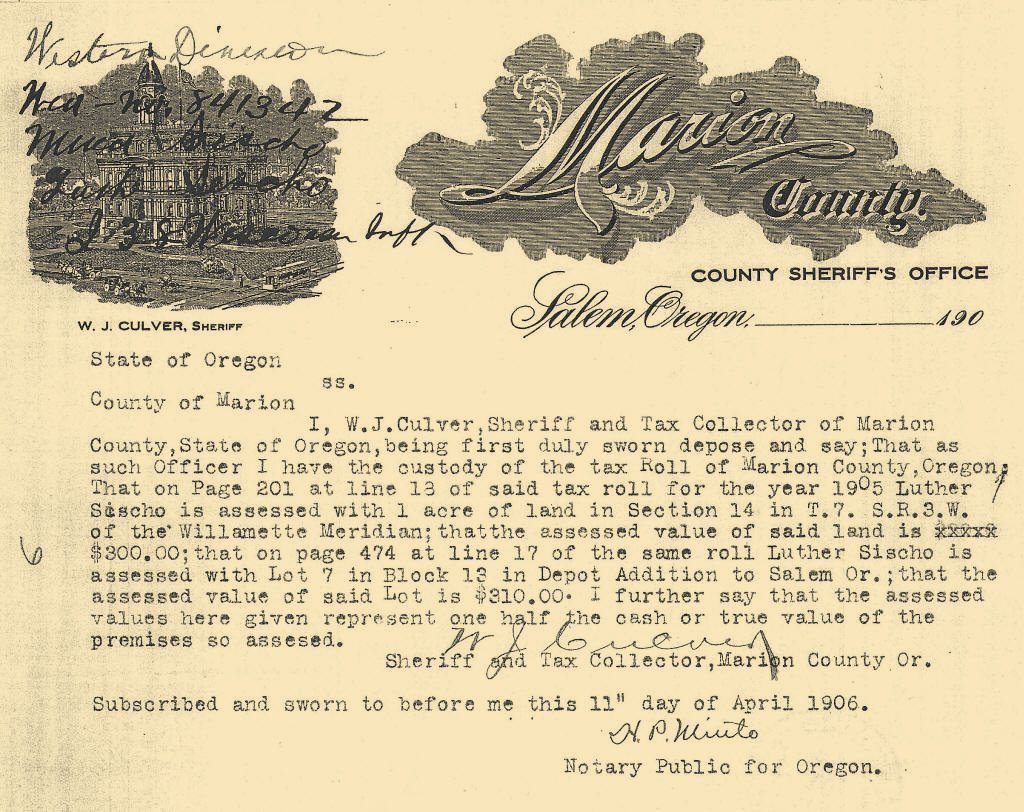 Western Division
No. 841347
Sischo
Luther Sischo
I 38 Wisconsin Inf
Marion
County.
COUNTY SHERIFF'S OFFICE
Salem, Oregon, 190
W. J. CULVER, SHERIFF
State of Oregon
ss.
County of Marion
I, W.J.Culver,Sheriff and Tax Collector of Marion
County,State of Oregon,being first duly sworn depose and say;That as
such Officer I have the custody of the tax Roll of Marion County,Oregon;
That on Page 201 at line 13 of said tax roll for the year 1905 Luther
Sischo is assessed with 1 acre of land in Section 14 in T.7. S.R.3.W.
of the Willamette Meridian;thatthe assessed value of said land is xxxxx
$300.00;that on page 474 at line 17 of the same roll Luther Sischo is
assessed with Lot 7 in Block 13 in Depot Addition to Salem Or.;that the
assessed value of said Lot is $310.00. I further say that the assessed
values here given represent one half the cash or true value of the
premises so assesed.
W J Culver
Sheriff and Tax Collector,Marion County Or.
Subscribed and sworn to before me this 11" day of April 1906.
H. P. Minto
Notary Public for Oregon.
6